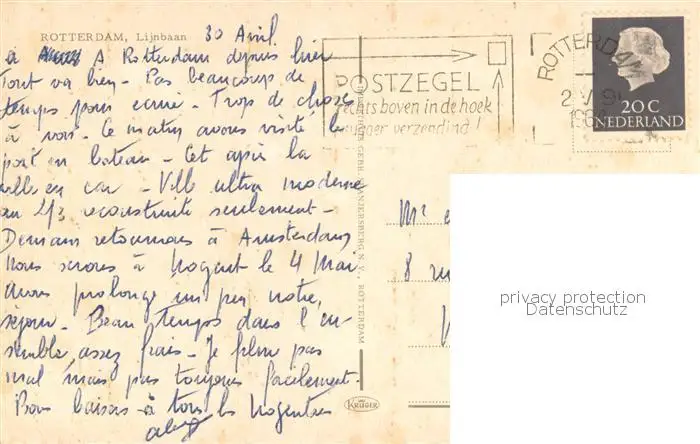 ROTTERDAM, Lijnbaan
30 Avril
à A Rotterdam depuis hier
Tout va bien - Pas beaucoup de
temps pour écrire - Trop de choses
à voir. Ce matin avons visité le
port en bateau - Cet après la
ville en car - Ville ultra moderne
en 2/3 reconstruite seulement -
Demain retournons à Amsterdam
nous serons à Nogent le 4 Mai
avons prolongé un peu notre
séjour - Beau temps dans l'en-
semble, assez frais - Je filme pas
mal mais pas toujours facilement -
Bons baisers à tous les Nogentais
POSTZEGEL
rechts boven in de hoek
vlugger verzending!
ROTTERDAM
2.V
20 C
NEDERLAND
GEBR. SPANJERSBERG N.V., ROTTERDAM
KRÜGER
Mr e
8 ru
privacy protection
Datenschutz